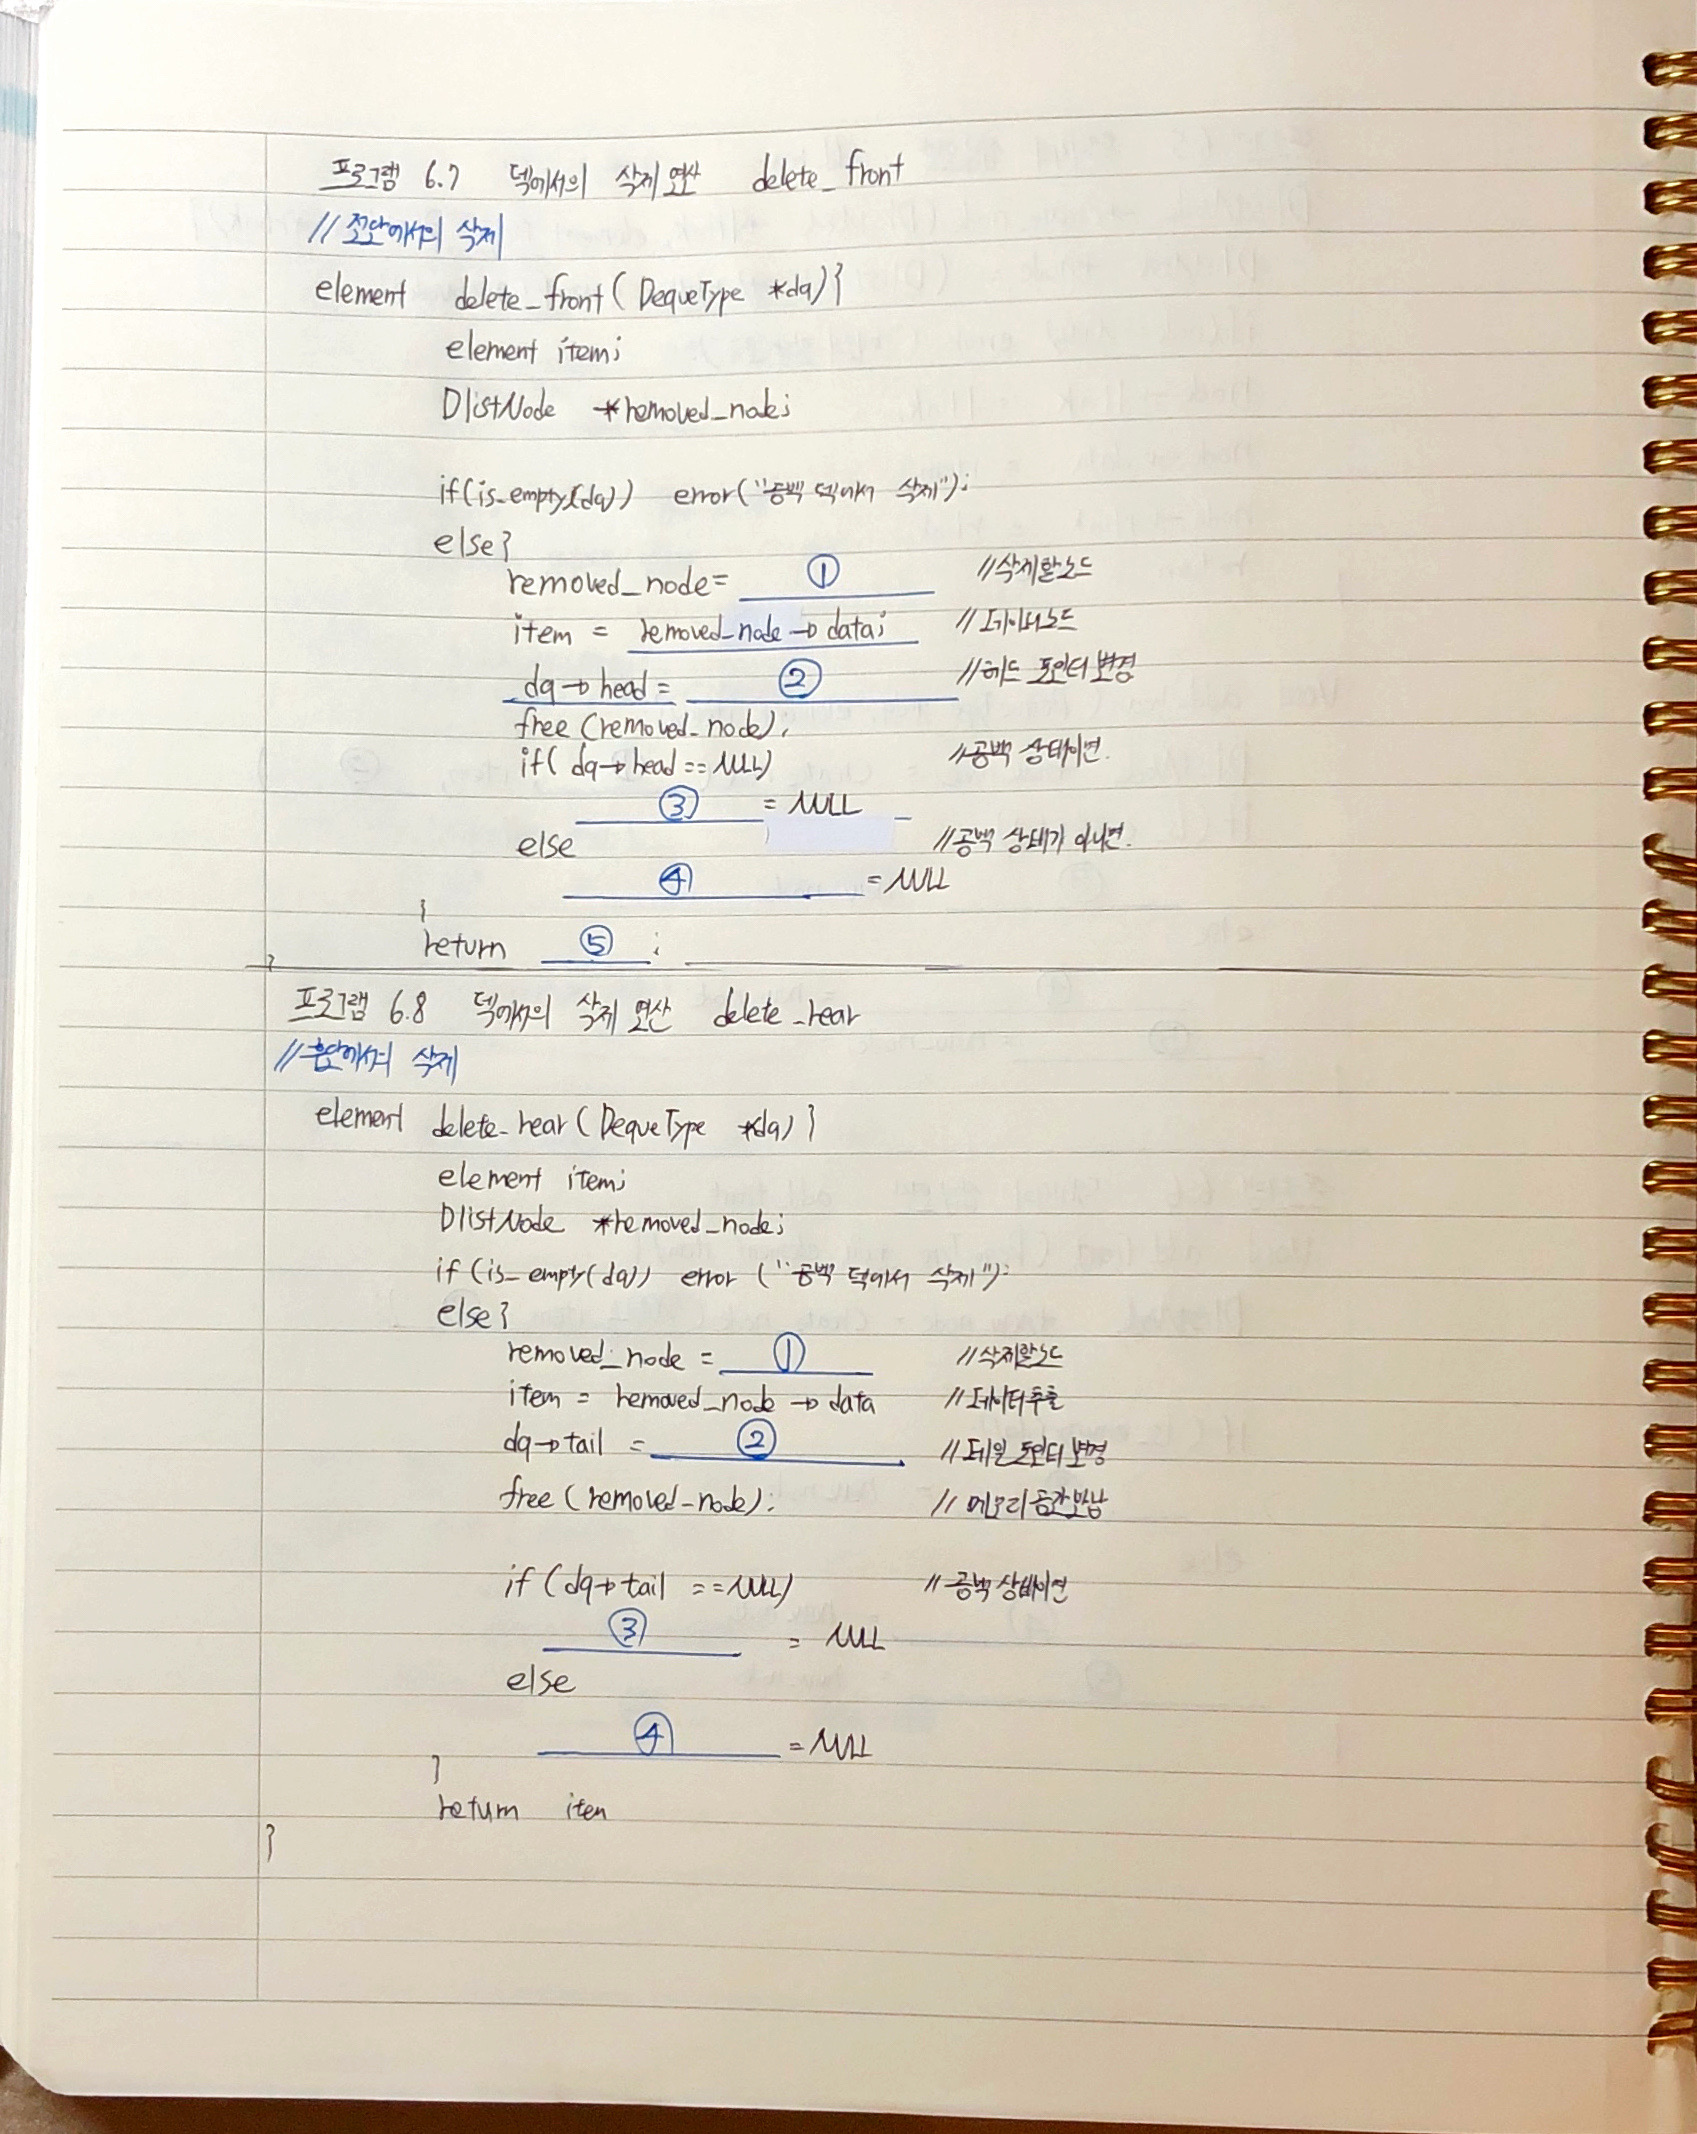 프로그램 6.7 덱에서의 삭제 연산 delete_front
//전단에서의 삭제
element delete_front(DequeType *dq){
element item;
DlistNode *removed_node;
if(is_empty(dq)) error("공백 덱에서 삭제");
else{
removed_node= ① //삭제할노드
item = removed_node→data; //데이터노드
dq→head= ② //헤드 포인터 변경
free(removed_node);
if( dq→head==NULL) //공백 상태이면.
③ = NULL
else //공백 상태가 아니면.
④ =NULL
}
return ⑤ ;
}
프로그램 6.8 덱에서의 삭제 연산 delete_rear
//후단에서의 삭제
element delete_rear(DequeType *dq) {
element item;
DlistNode *removed_node;
if (is_empty(dq)) error ("공백 덱에서 삭제");
else{
removed_node = ① //삭제할노드
item = removed_node →data //데이터추출
dq→tail = ② //테일 포인터 변경
free (removed_node); // 메모리 공간반납
if (dq→tail ==NULL) // 공백 상태이면
③ = NULL
else
④ =NULL
}
return item
}